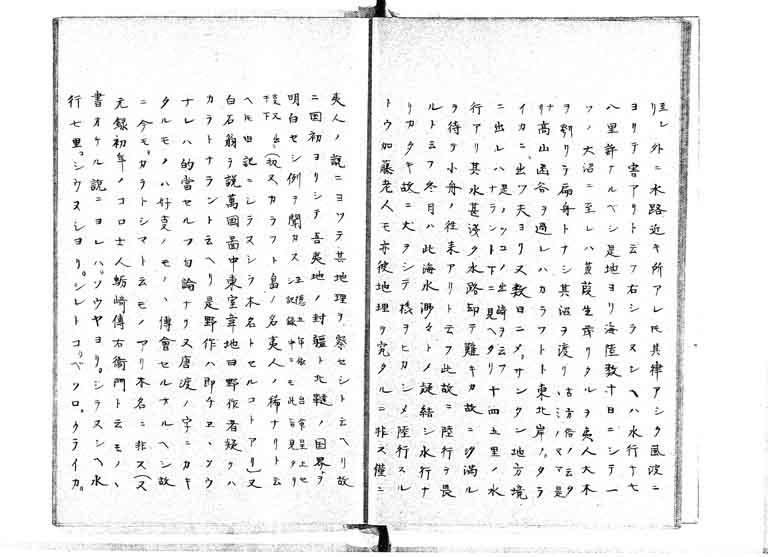 リ至レ外ニ水路近キ所アレ𪜈其津アシク風波ニ
ヨリテ害アリト云フ右シラヌシヘハ水行十七
八里許ナルベシ是地ヨリ海陸数十日ニシテ一
ツノ大沼ニ至レハ葭葭生茂リタルヲ夷人大木
ヲ刳リテ扁舟トナシ其沼ヲ渡リ
高山函谷ヲ過レハカラフト東北岸ノタラ
イカニ出ツ夫ヨリ又数日ニメサンタン地方境
ニ出レハ是ノツコノ出崎ヲ云フ
ナラント下ニ見ヘタリ十四五里ノ水
行アリ其水甚浅ク水路却テ難キカ故ニ汐満ル
ヲ待テ小舟ノ往来アリト云フ此故ニ陸行ヲ畏
ルト云フ冬月ハ此海水渺々トノ凝結シ水行ナ
リカタキ故ニ犬ヲシテ橇ヲヒカシメ陸行スル
トウ加藤老人モ亦彼地理ヲ究タルニ非ス僅ニ
夷人ノ説ニヨツテ其地理ヲ察セシト云ヘリ故
ニ国初ヨリシテ吾夷地ノ封疆ト北韃ノ国界ヲ
明白セシ例ヲ聞カス
又カラフト島ノ名夷人ノ稱ナリト云
ヘ𪜈日記ニシラヌシラ木名トセルコトアリ又
白石翁ヲ説萬国圖中東室韋地曰野作者疑クハ
カラトナラント云ヘリ是野作ハ即チヱソウ
ナレハ的當セル勿論ナリ又唐渡ノ字ニカキ
タルモノハ好㕝ノモノヽ傳會セルナルヘシ故
ニ今モカラトシマト云モノアリ木名ニ非ス又
元録初年ノコロ士人蛎崎傳右衛門ト云モノヽ
書オケル説ニヨレハソウヤヨリシラヌシヘ水
行七里シウヌシヨリシレトコベツロクライカ